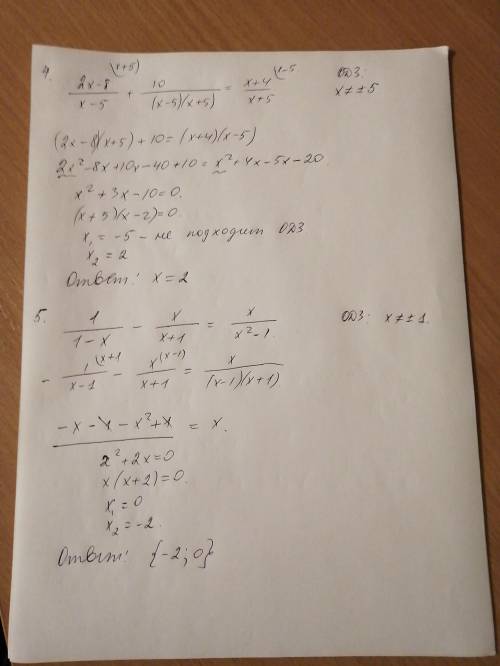 4. (2x-8)/(x-5) \(x+5) + 10/((x-5)(x+5)) = (x+4)/(x+5) \x-5 ОДЗ: x≠±5
(2x-8)(x+5)+10=(x+4)(x-5)
2x²-8x+10x-40+10=x²+4x-5x-20.
x²+3x-10=0.
(x+5)(x-2)=0.
x₁=-5 - не подходит ОДЗ
x₂=2
Ответ: x=2
5. 1/(1-x) - x/(x+1) = x/(x²-1) ОДЗ: x≠±1.
- 1/(x-1) \(x+1 - x/(x+1) (x-1) = x/((x-1)(x+1))
-x-x-x²+x = x.
x²+2x=0
x(x+2)=0.
x₁=0
x₂=-2.
Ответ: {-2; 0}